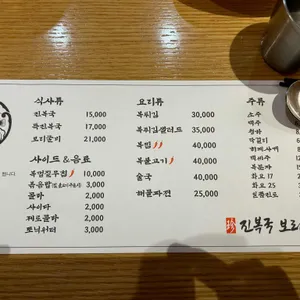 식사류
진복국 15,000
특진복국 17,000
보리굴비 21,000
사이드 & 음료
복껍질무침 10,000
볶음밥 2,000
콜라 2,000
사이다 2,000
제로콜라 2,000
토닉워터 3,000
요리류
복튀김 30,000
복튀김샐러드 35,000
복찜 40,000
복불고기 40,000
술국 40,000
해물파전 25,000
주류
소주
맥주
청하
막걸리
백세주
복분자
화요 17
화요 25
진복국 보리